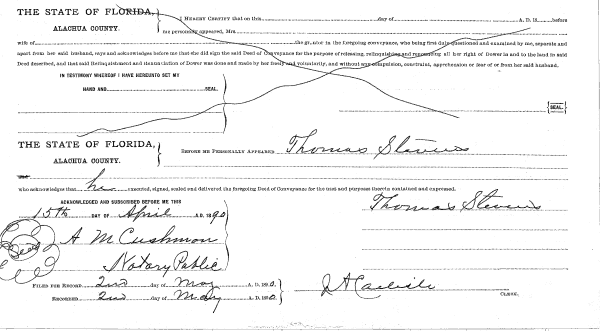 THE STATE OF FLORIDA,
ALACHUA COUNTY.
I HEREBY CERTIFY that on this day of A. D. 18 before
me personally appeared, Mrs
wife of the grantor in the foregoing conveyance, who being first duly questioned and examined by me, separate and
apart from her said husband, says and acknowledges before me that she did sign the said Deed of Conveyance for the purpose of releasing, relinquishing and renouncing all her right of Dower in and to the land in said
Deed described, and that said Relinquishment and Renunciation of Dower was done and made by her freely and voluntarily, and without any compulsion, constraint, apprehension or fear of or from her said husband.
IN TESTIMONY WHEREOF I HAVE HEREUNTO SET MY
HAND AND SEAL.
SEAL.
THE STATE OF FLORIDA,
ALACHUA COUNTY.
BEFORE ME PERSONALLY APPEARED Thomas Stevens
who acknowledges that he executed, signed, sealed and delivered the foregoing Deed of Conveyance for the uses and purposes therein contained and expressed.
ACKNOWLEDGED AND SUBSCRIBED BEFORE ME THIS
15th DAY OF April A. D. 1890
Thomas Stevens
Seal
A M Cushmon
Notary Public
FILED FOR RECORD 2nd day of May A. D. 1890.
RECORDED 2nd day of May A. D. 1890.
J A Carlisle
CLERK.